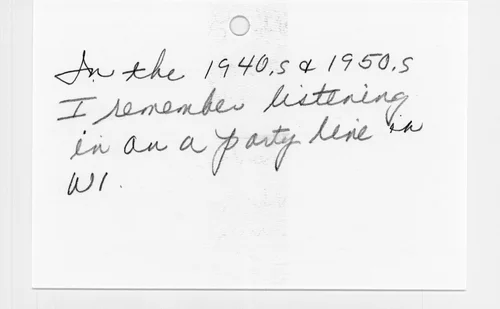 In the 1940,s & 1950,s
I remember listening
in on a party line in
WI.